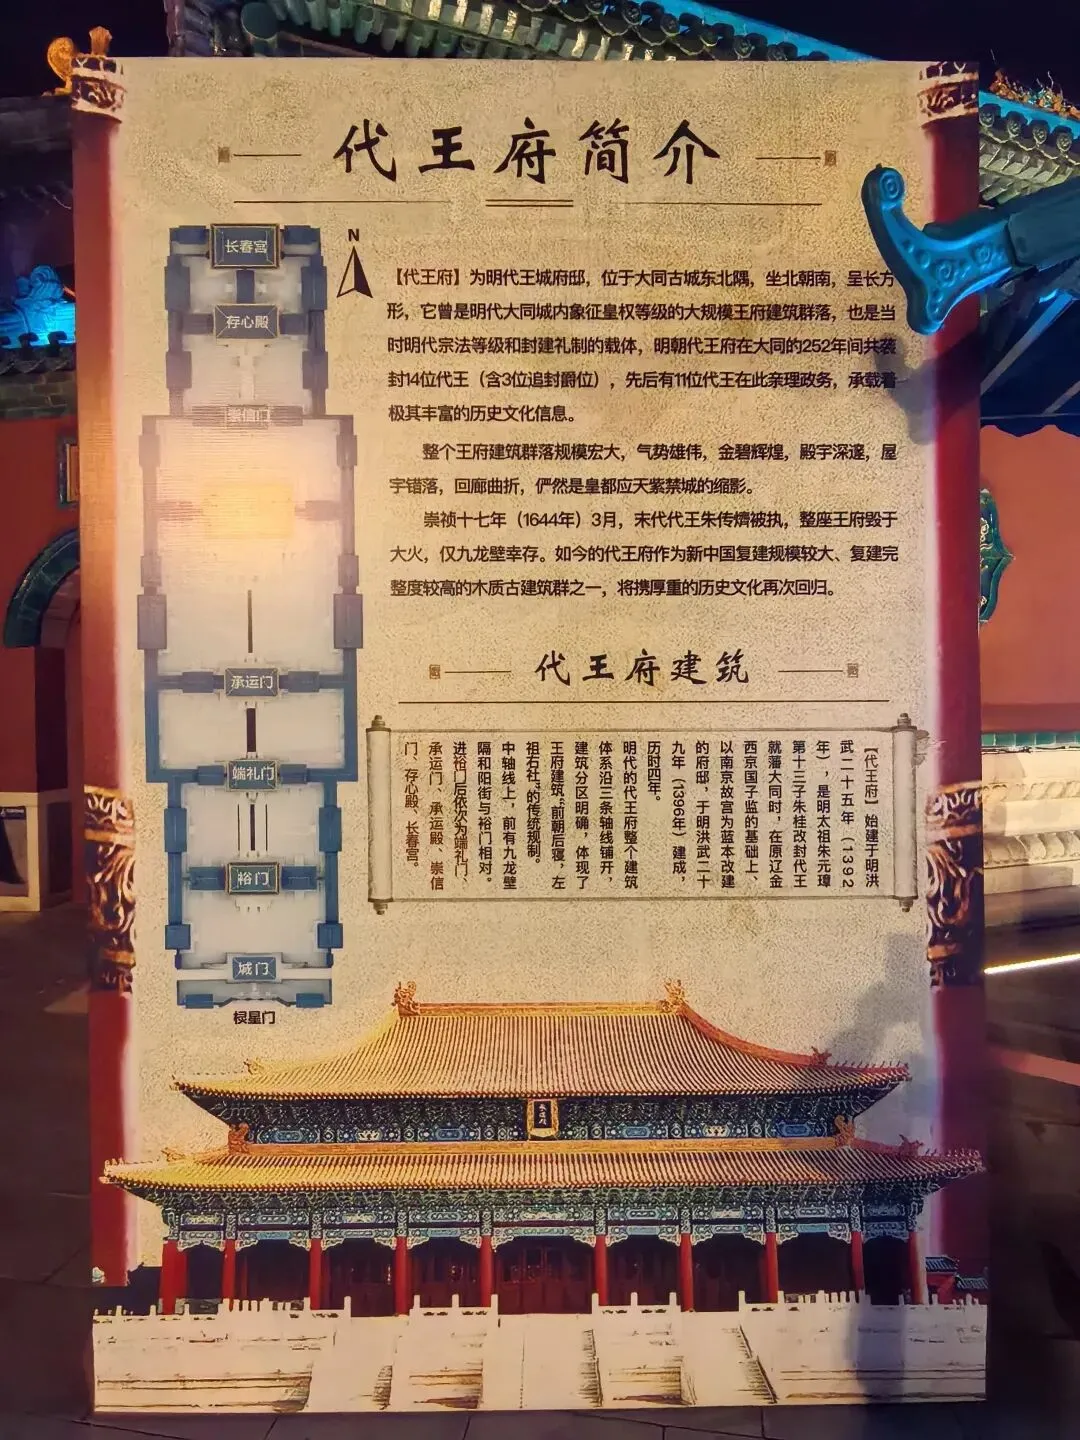 代王府简介
长春宫
存心殿
崇信门
承运门
端礼门
裕门
城门
棂星门
N
【代王府】为明代王城府邸，位于大同古城东北隅，坐北朝南，呈长方
形，它曾是明代大同城内象征皇权等级的大规模王府建筑群落，也是当
时明代宗法等级和封建礼制的载体，明朝代王府在大同的252年间共袭
封14位代王（含3位追封爵位），先后有11位代王在此亲理政务，承载着
极其丰富的历史文化信息。
整个王府建筑群落规模宏大，气势雄伟，金碧辉煌，殿宇深邃，屋
宇错落，回廊曲折，俨然是皇都应天紫禁城的缩影。
崇祯十七年（1644年）3月，末代代王朱传㸄被执，整座王府毁于
大火，仅九龙壁幸存。如今的代王府作为新中国复建规模较大、复建完
整度较高的木质古建筑群之一，将携厚重的历史文化再次回归。
代王府建筑
【代王府】始建于明洪
武二十五年（1392
年），是明太祖朱元璋
第十三子朱桂改封代王
就藩大同时，在原辽金
西京国子监的基础上、
以南京故宫为蓝本改建
的府邸，于明洪武二十
九年（1396年）建成，
历时四年。
明代的代王府整个建筑
体系沿三条轴线铺开，
建筑分区明确，体现了
王府建筑“前朝后寝，左
祖右社”的传统规制。
中轴线上，前有九龙壁
隔和阳街与裕门相对。
进裕门后依次为端礼门、
承运门、承运殿、崇信
门、存心殿、长春宫。
承运殿